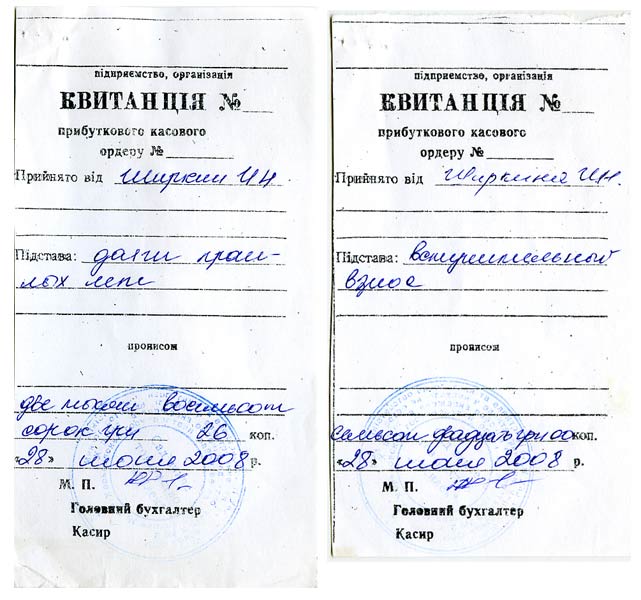 підприємство, організація
КВИТАНЦІЯ №
прибуткового касового
ордеру №
Прийнято від Ширкин И Н
Підстава: долги прош-
лых лет
прописом
две тысячи восемьсот
сорок три 26 коп.
"28" июля 2008 р.
М. П.
Головний бухгалтер
Касир
підприємство, організація
КВИТАНЦІЯ №
прибуткового касового
ордеру №
Прийнято від Ширкина И.Н.
Підстава: вступительный
взнос
прописом
семьсот двадцать три 00 коп.
"28" июля 2008 р.
М. П.
Головний бухгалтер
Касир